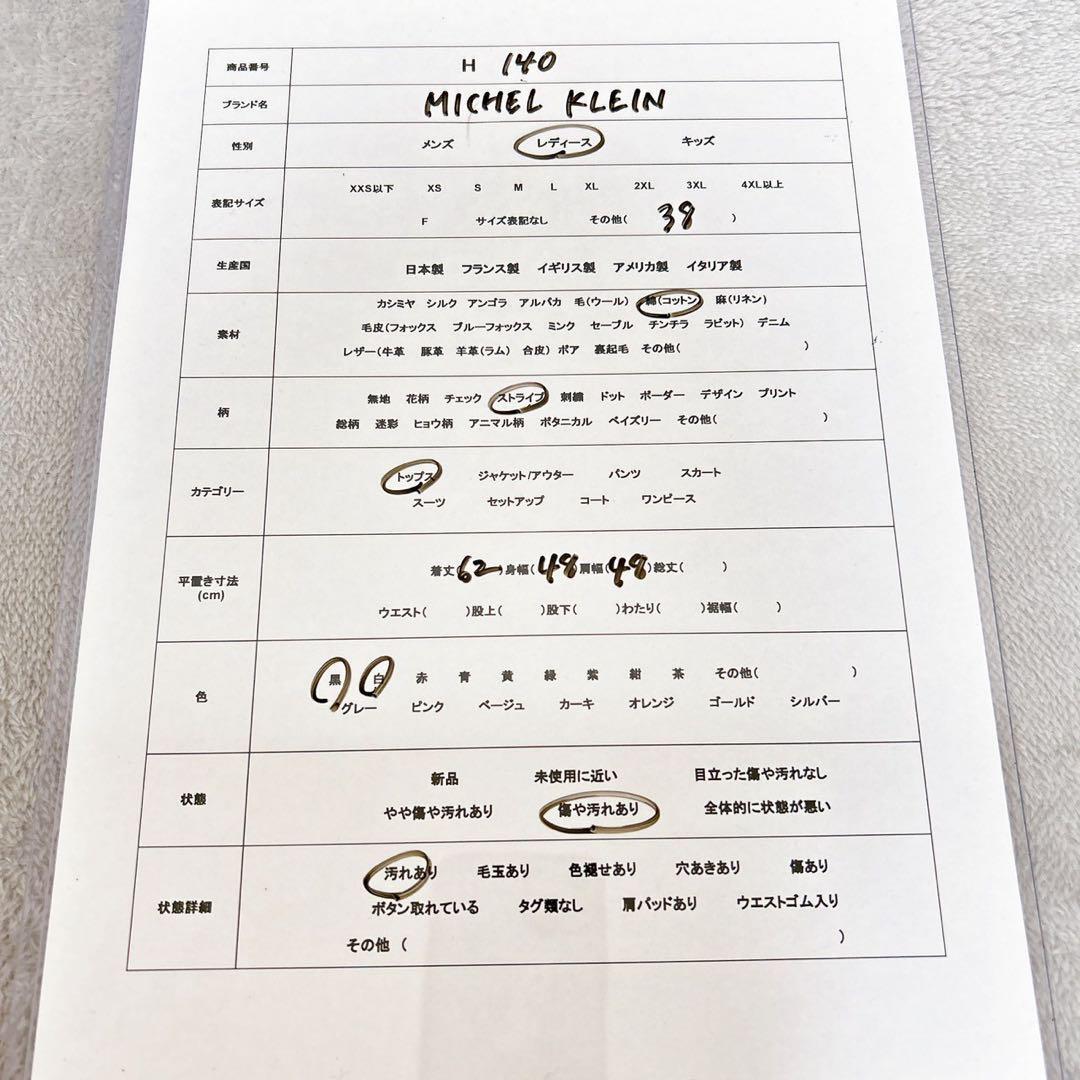 商品番号 H 140
ブランド名 MICHEL KLEIN
性別 メンズ レディース キッズ
表記サイズ
XXS以下 XS S M L XL 2XL 3XL 4XL以上
F サイズ表記なし その他( 38 )
生産国 日本製 フランス製 イギリス製 アメリカ製 イタリア製
素材
カシミヤ シルク アンゴラ アルパカ 毛(ウール) 綿(コットン) 麻(リネン)
毛皮(フォックス ブルーフォックス ミンク セーブル チンチラ ラビット) デニム
レザー(牛革 豚革 羊革(ラム) 合皮) ボア 裏起毛 その他( )
柄
無地 花柄 チェック ストライプ 刺繍 ドット ボーダー デザイン プリント
総柄 迷彩 ヒョウ柄 アニマル柄 ボタニカル ペイズリー その他( )
カテゴリー
トップス ジャケット/アウター パンツ スカート
スーツ セットアップ コート ワンピース
平置き寸法
(cm)
着丈(62)身幅(48)肩幅(48)総丈( )
ウエスト( )股上( )股下( )わたり( )裾幅( )
色
黒 白 赤 青 黄 緑 紫 紺 茶 その他( )
グレー ピンク ベージュ カーキ オレンジ ゴールド シルバー
状態
新品 未使用に近い 目立った傷や汚れなし
やや傷や汚れあり 傷や汚れあり 全体的に状態が悪い
状態詳細
汚れあり 毛玉あり 色褪せあり 穴あきあり 傷あり
ボタン取れている タグ類なし 肩パッドあり ウエストゴム入り
その他 ( )